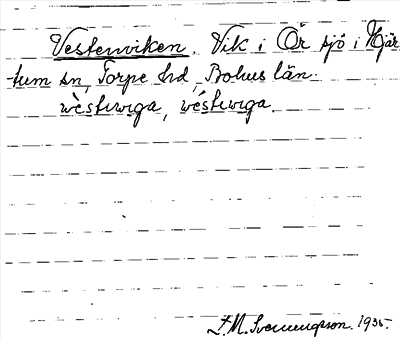 Vestenviken. Vik i Ör sjö i Hjär
tum sn, Torpe hd, Bohus län.
wèstɩwɩga, wéstɩwɩga.
F.M. Svenungsson. 1935.